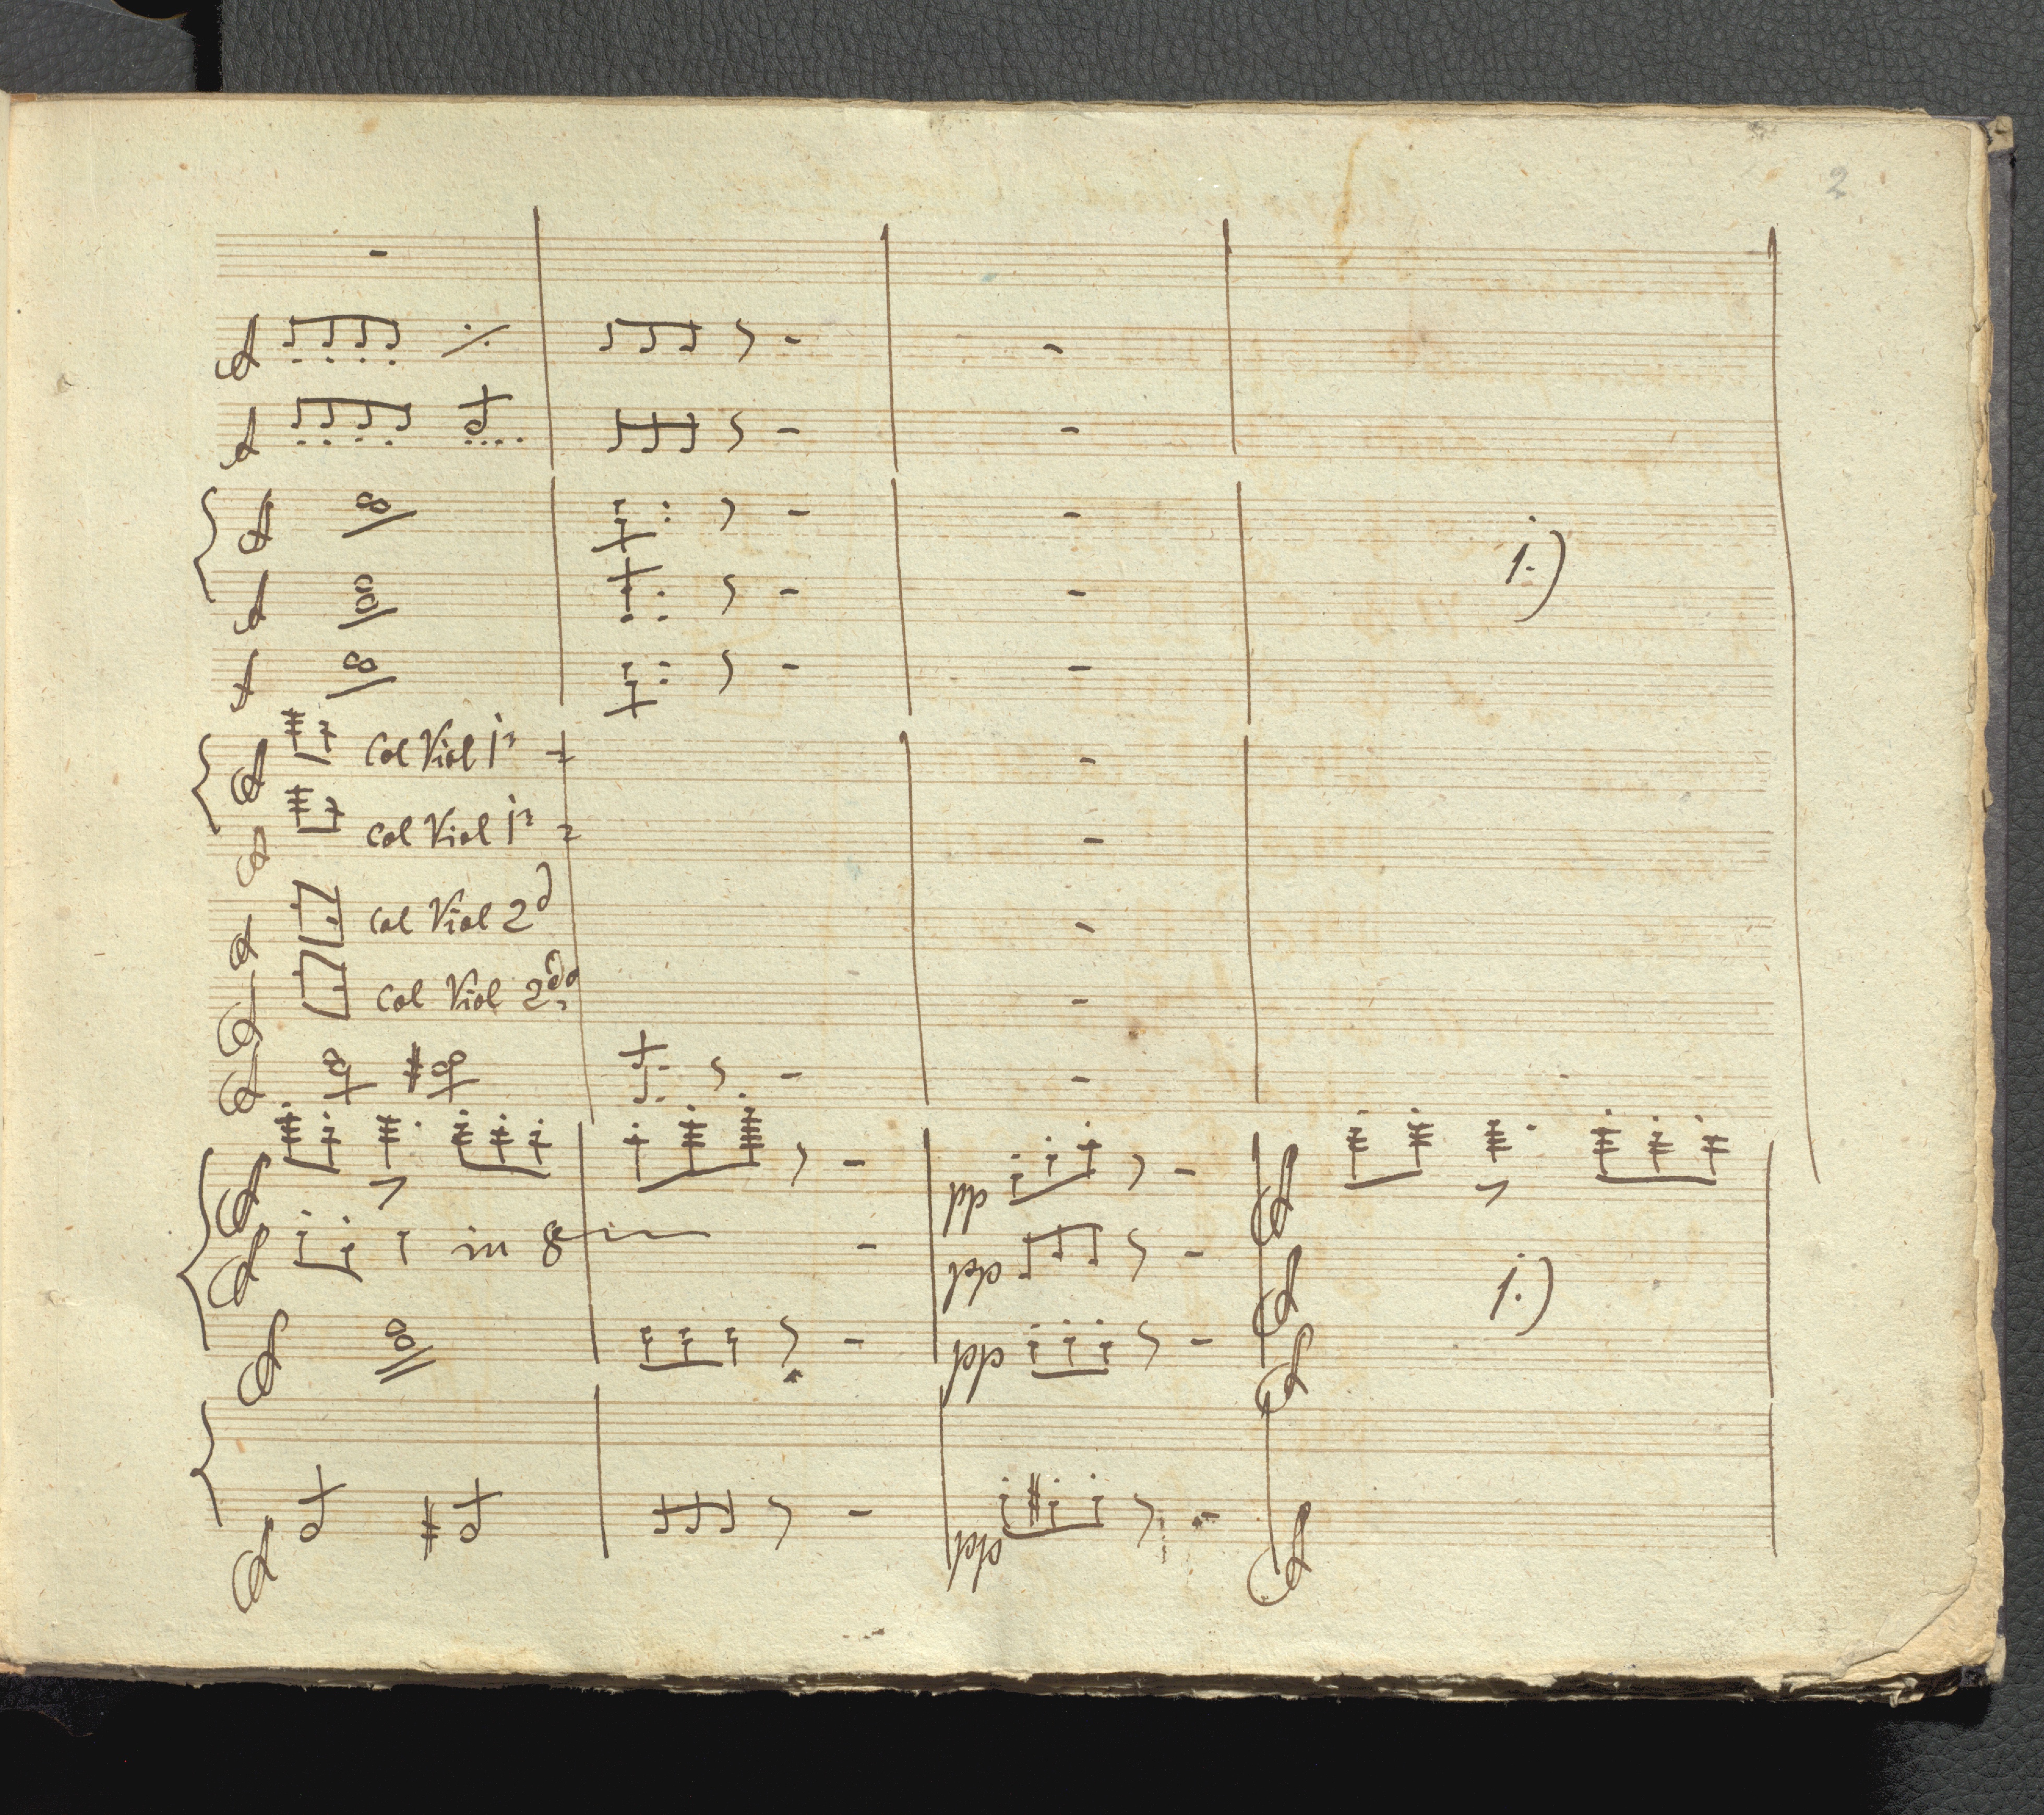 2
1.)
Col Viol 1º
Col Viol 1º
Col Viol 2d
Col Viol 2do
in 8
pp
pp
1.)
pp
pp